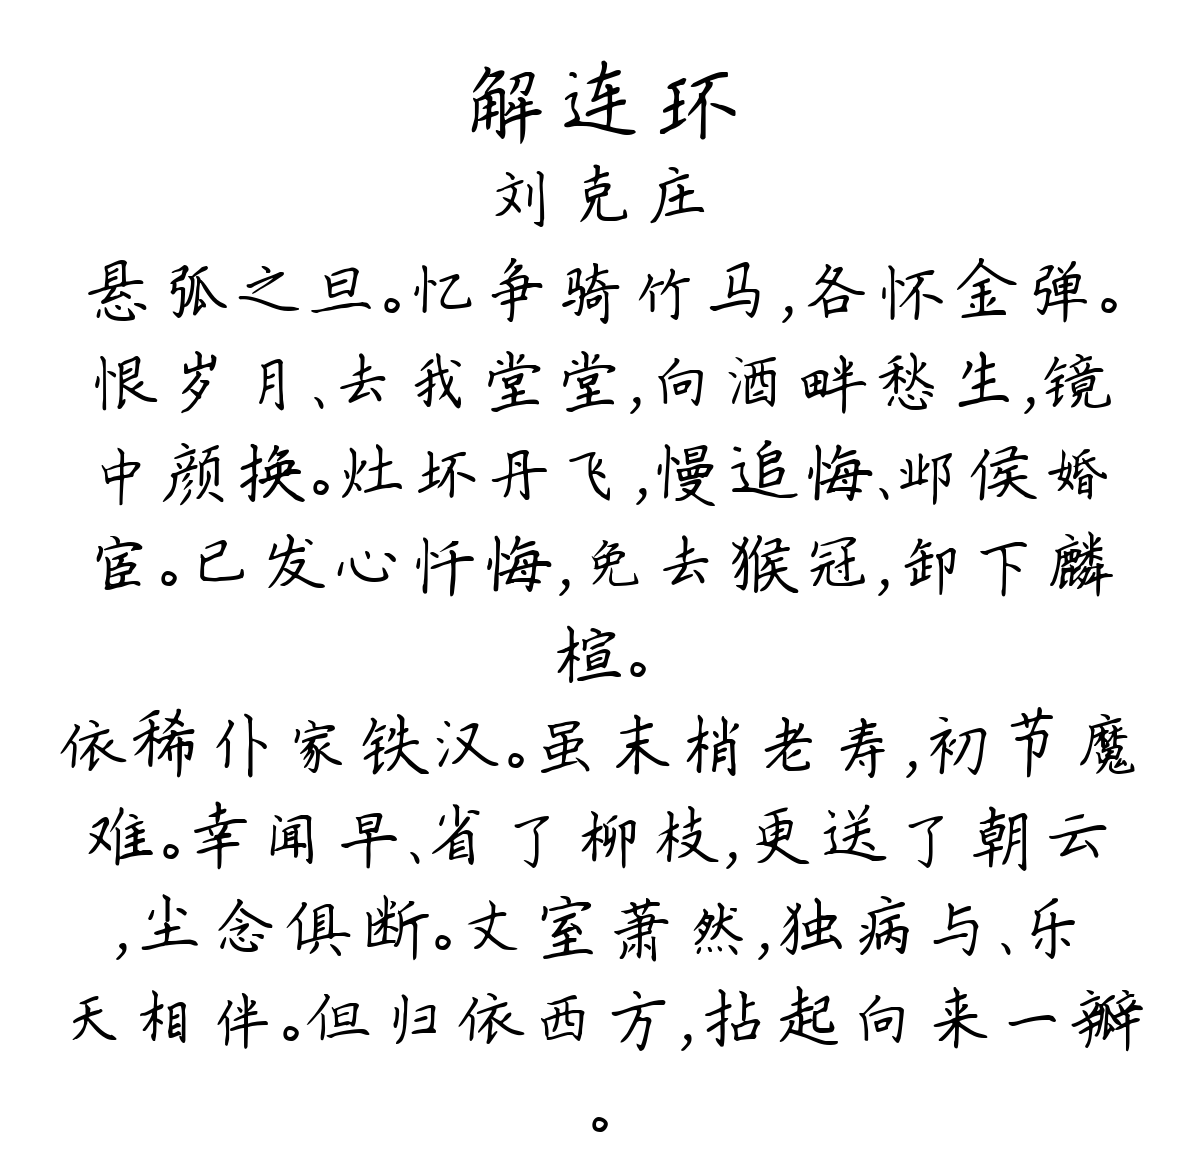 解连环
刘克庄
悬弧之旦。忆争骑竹马,各怀金弹。
恨岁月、去我堂堂,向酒畔愁生,镜
中颜换。灶坏丹飞,慢追悔、邺侯婚
宦。已发心忏悔,免去猴冠,卸下麟
楦。
依稀仆家铁汉。虽末梢老寿,初节魔
难。幸闻早、省了柳枝,更送了朝云
,尘念俱断。丈室萧然,独病与、乐
天相伴。但归依西方,拈起向来一瓣
。